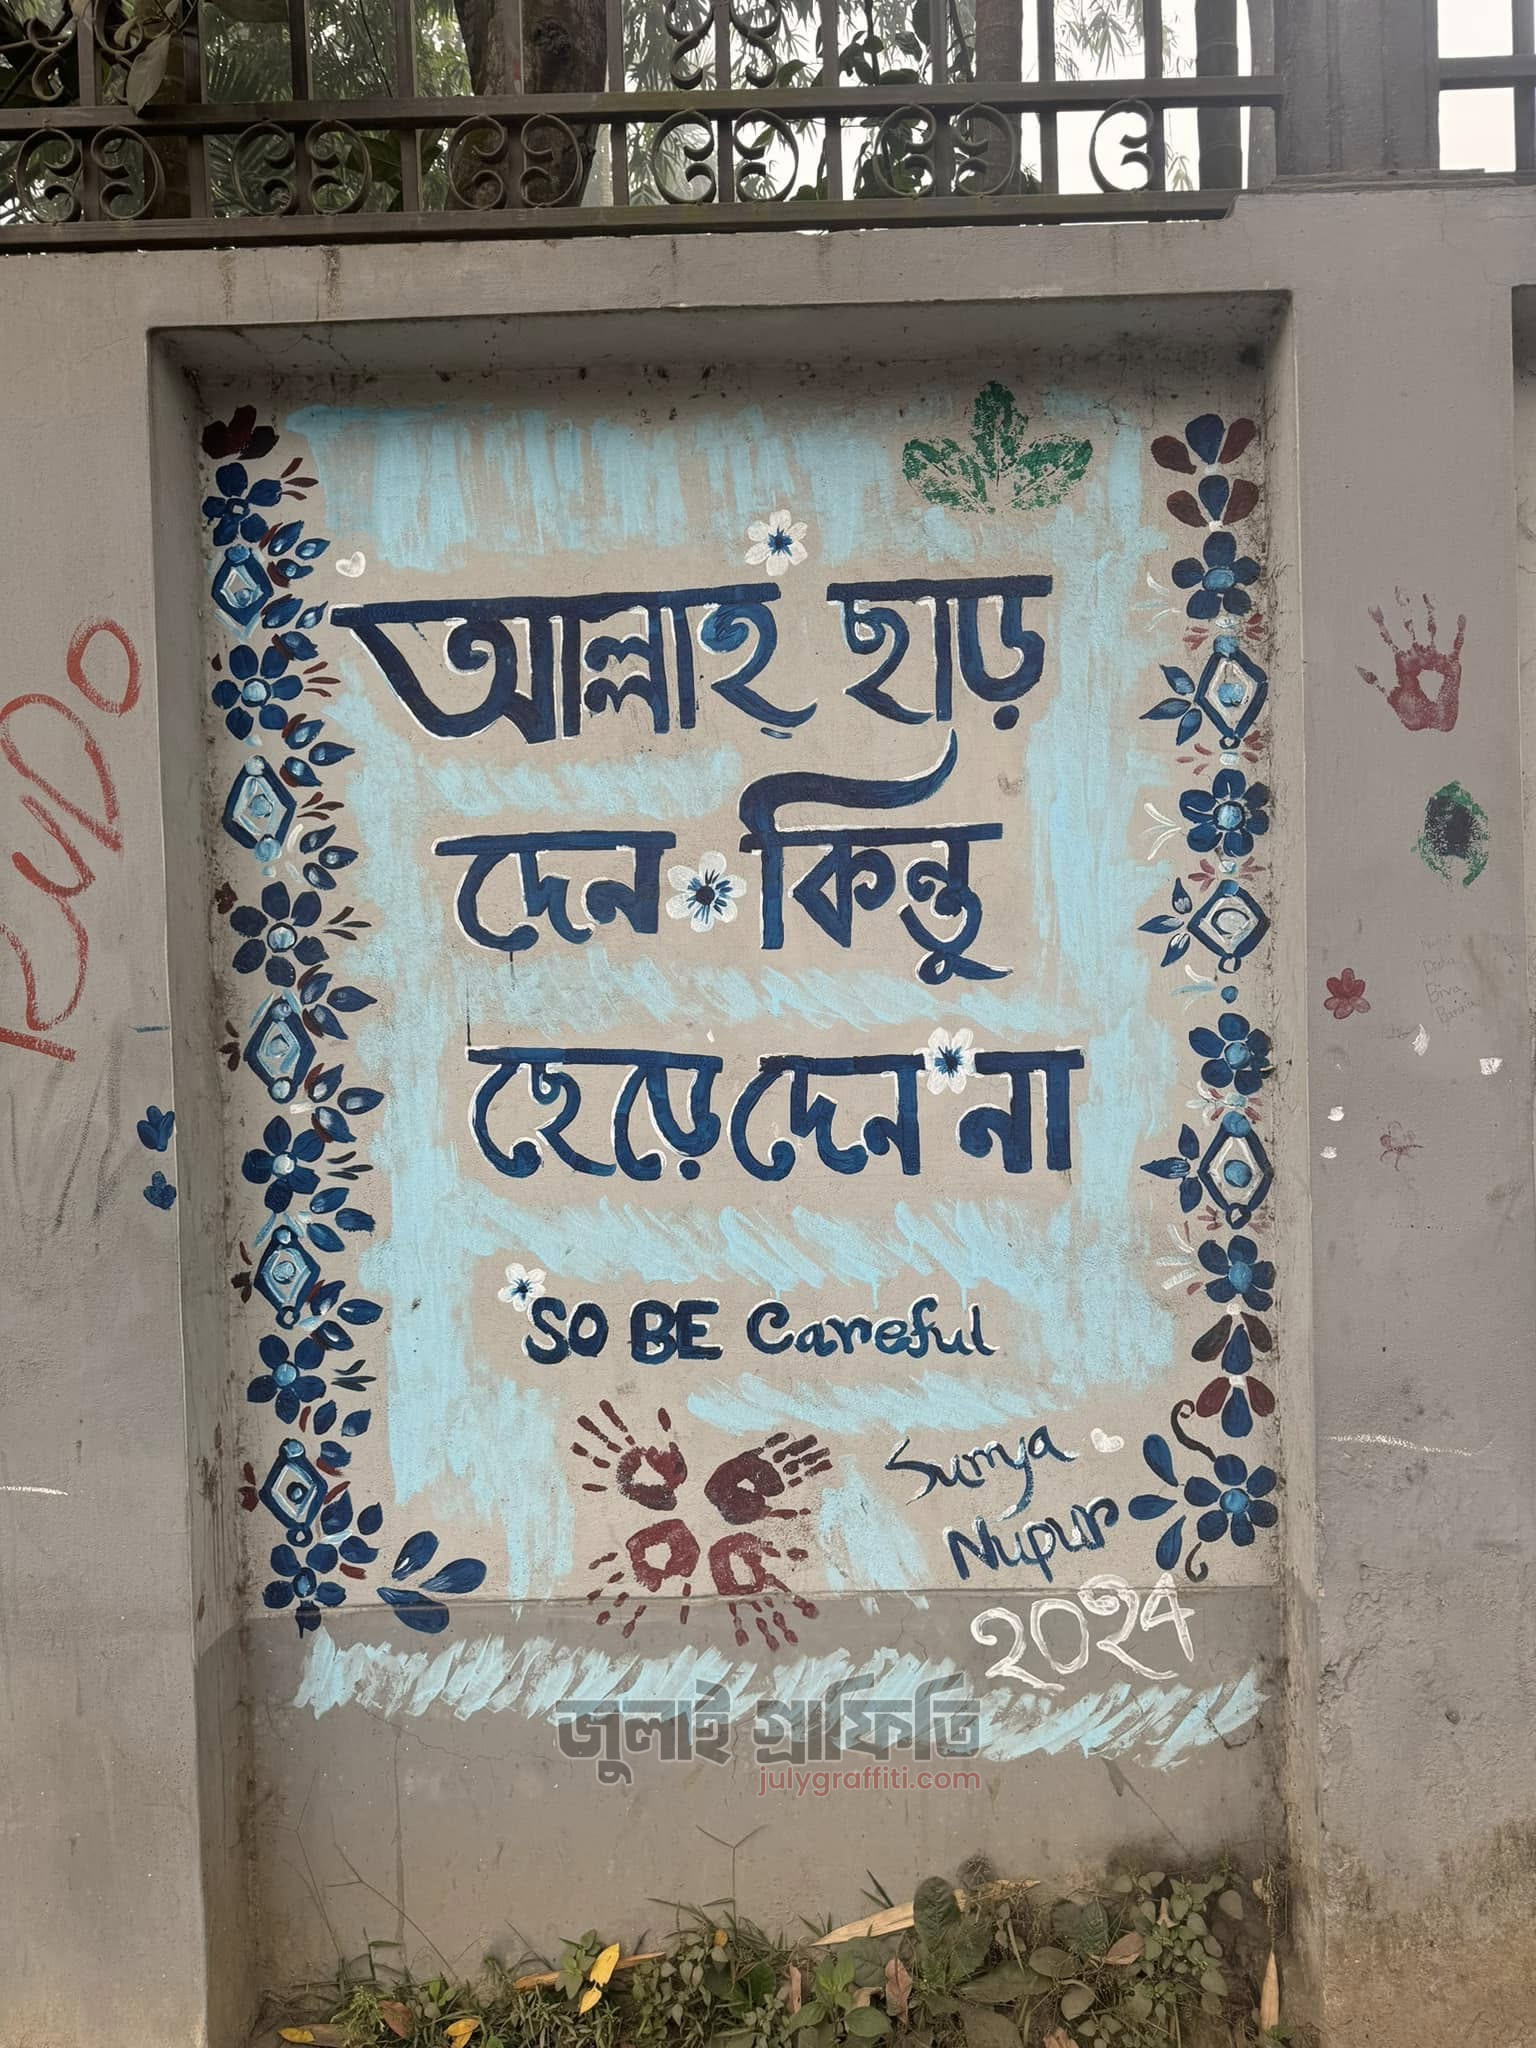 আল্লাহ ছাড়
দেন কিন্তু
ছেড়ে দেন না
SO BE Careful
Sumya
Nupur
২০২৪
জুলাই গ্রাফিতি
julygraffiti.com